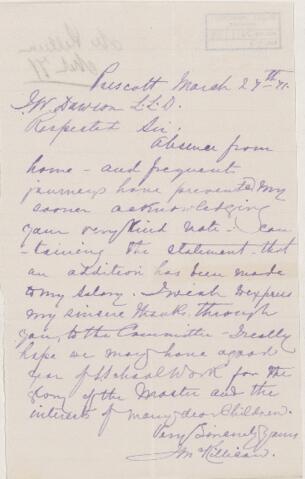 Prescott March 27th 71.
J.W. Dawson L.L.D.
Respected Sir,
Absence from
home - and frequent
journeys have prevented my
sooner acknowledging
your very kind note - con
-taining the statement that
an addition has been made
to my salary. I wish to express
my sincere thanks, through
you, to the Committee - I really
hope we may have a good
year of School Work for the
glory of the Master and the
interests of many dear Children.
Very Sincerely Yours
J McKillican.